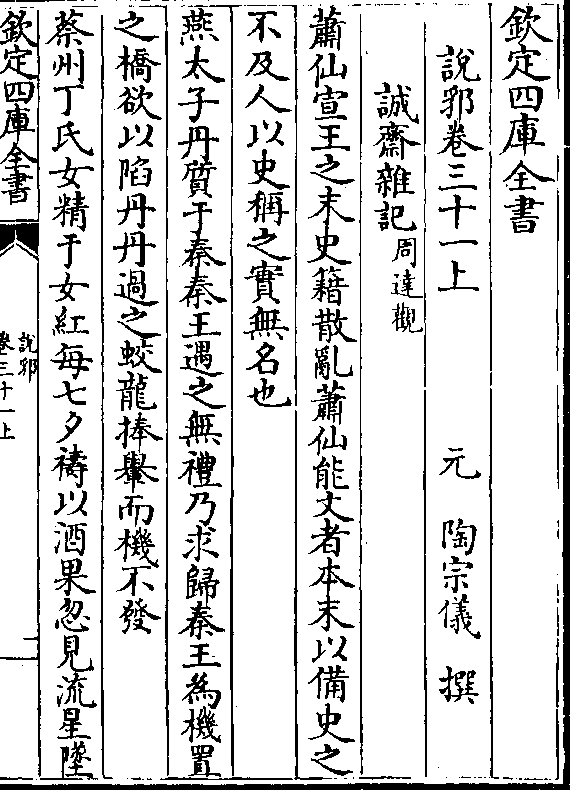 欽定四庫全書
說郛卷三十一上 元 陶宗儀 撰
誠齋雜記周達觀
蕭仙宣王之末史籍散亂蕭仙能文者本末以備史之
不及人以史稱之實無名也
燕太子丹質于秦秦王遇之無禮乃求歸秦王為機置
之橋欲以陷丹丹過之蛟龍捧轝而機不發
蔡州丁氏女精于女紅每七夕禱以酒果忽見流星墜
欽定四庫全書
說郛
卷三十一上